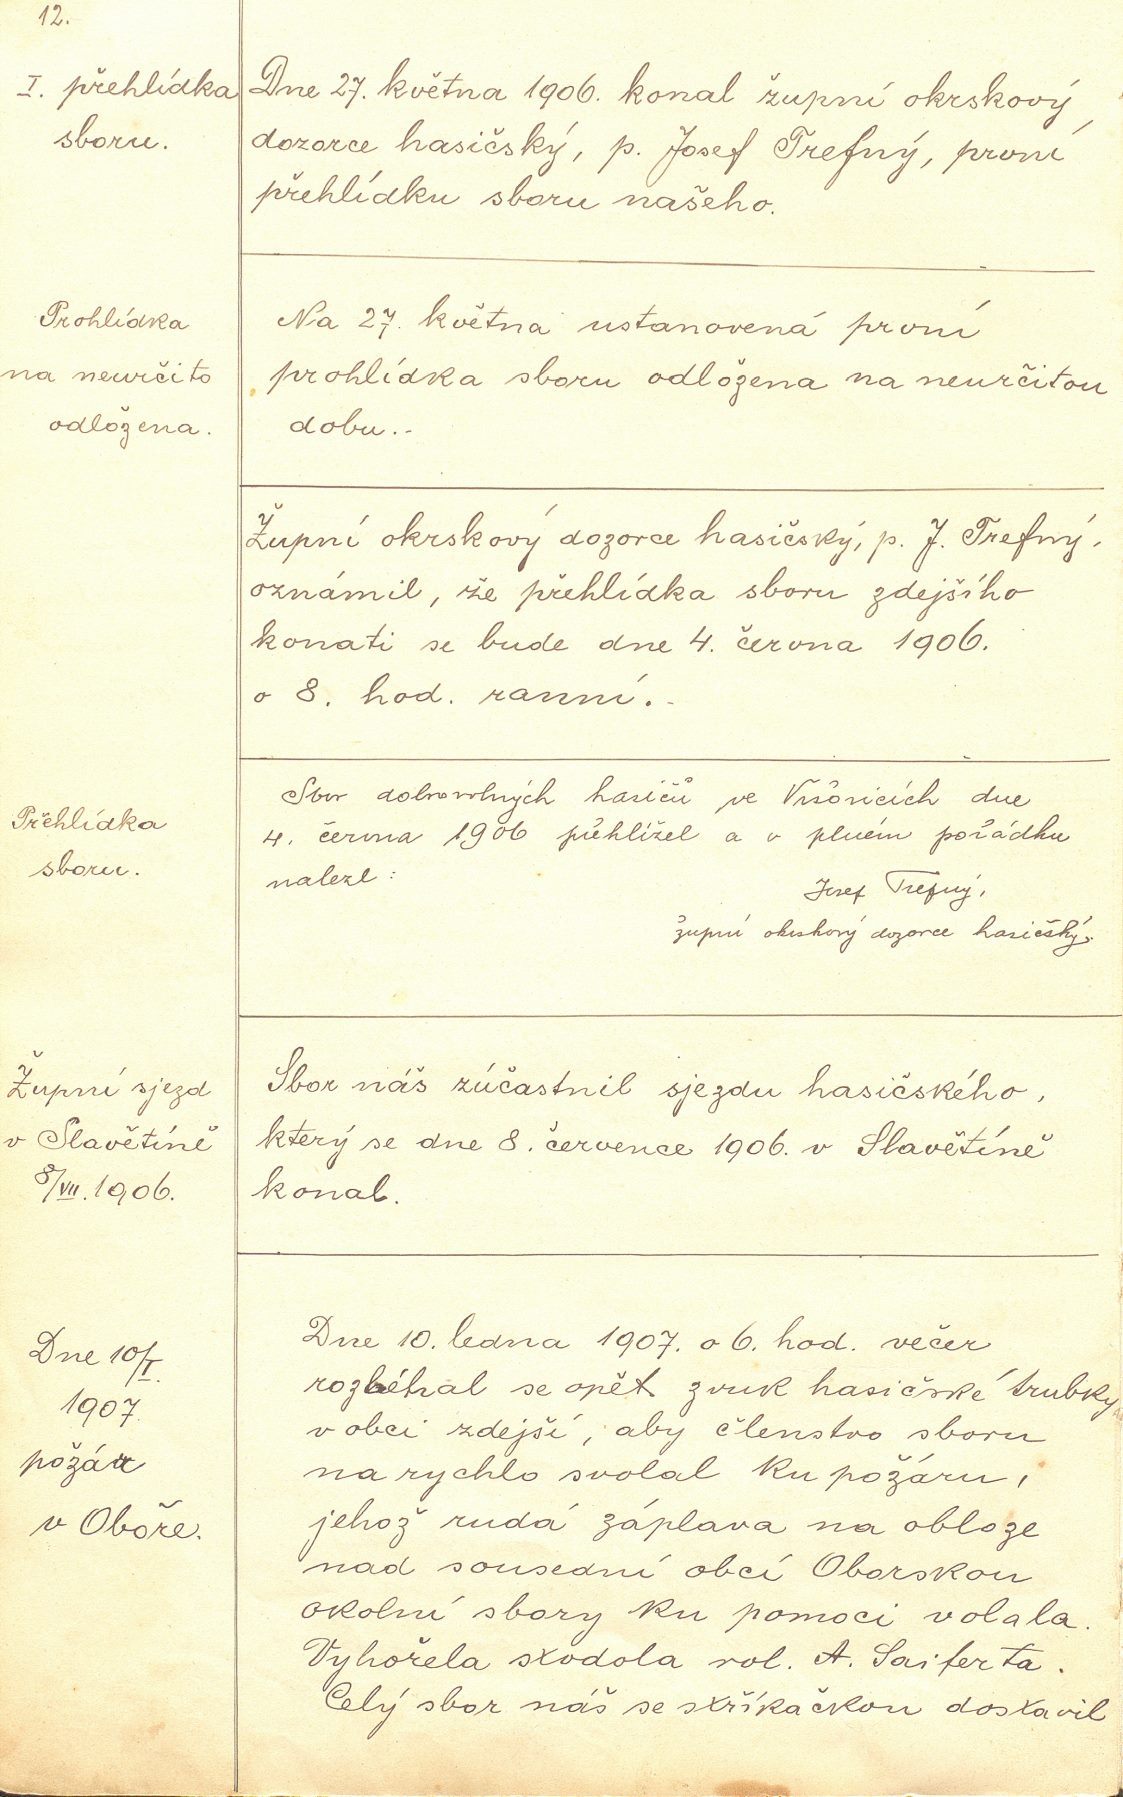 12.
I. přehlídka
sboru.
Dne 27. května 1906. konal župní okrskový
dozorce hasičský, p. Josef Trefný, první
přehlídku sboru našeho.
Prohlídka
na neurčito
odložena.
Na 27. května ustanovená první
prohlídka sboru odložena na neurčitou
dobu..
Župní okrskový dozorce hasičský, p. J. Trefný,
oznámil, že přehlídka sboru zdejšího
konati se bude dne 4. června 1906.
o 8. hod. ranní.
Přehlídka
sboru.
Sbor dobrovolných hasičů ve Vršovicích dne
4. června 1906 přehlížel a v plném pořádku
nalezl:
Josef Trefný,
župní okrskový dozorce hasičský.
Župní sjezd
v Slavětíně
8/VII. 1906.
Sbor náš zúčastnil sjezdu hasičského,
který se dne 8. července 1906. v Slavětíně
konal.
Dne 10/I.
1907
požár
v Oboře.
Dne 10. ledna 1907. o 6. hod. večer
rozléhal se opět zvuk hasičské trubky
v obci zdejší, aby členstvo sboru
na rychlo svolal ku požáru,
jehož rudá záplava na obloze
nad sousední obcí Oborskou
okolní sbory ku pomoci volala.
Vyhořela stodola rol. A. Saiferta.
Celý sbor náš se stříkačkou dostavil